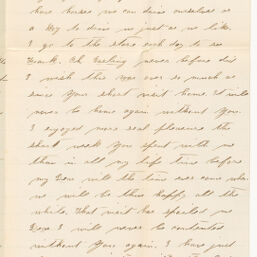 have horses we can drive ourselves or
a boy to drive us just as we like.
I go to the store each day to see
Frank. Oh darling never before did
I wish this was over so much as
since your short visit home. It will
never be home again without you.
I enjoyed more real pleasure the
short week you spent with me
than in all my life time before
my Dear will the time ever come when
we will be thus happy all the
while. That visit has spoiled me
Dear I will never be contented
without you again. I have just